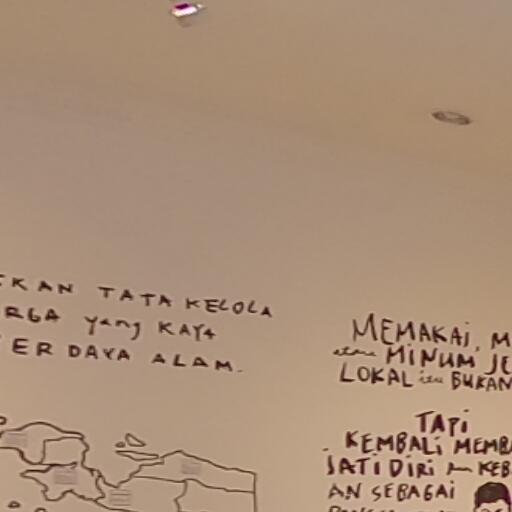 KAN TATA KELOLA
RGA yang KAYA
ER DAYA ALAM.
MEMAKAI, M
atau MINUM JE
LOKAL itu BUKAN
TAPI
KEMBALI MEMBA
JATI DIRI KEB
AN SEBAGAI